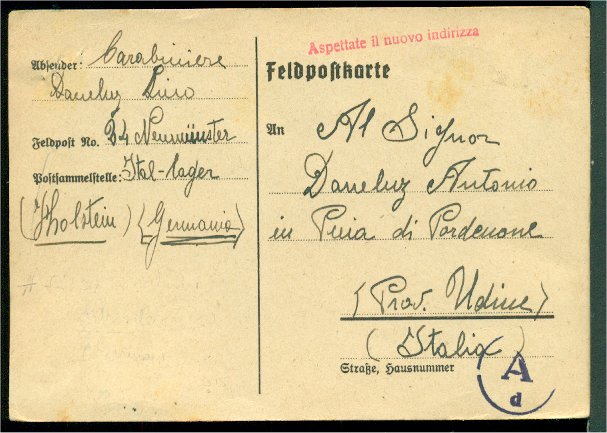 Aspettate il nuovo indirizza
Feldpostkarte
Absender: Carabiniere
Daneluz Lino
Feldpost No. 24 Neumünster
Postsammelstelle: Ital-lager
(Holstein) (Germania)
An Al Signor
Daneluz Antonio
in Puia di Pordenone
(Prov. Udine)
(Italia)
Straße, Hausnummer
A
d